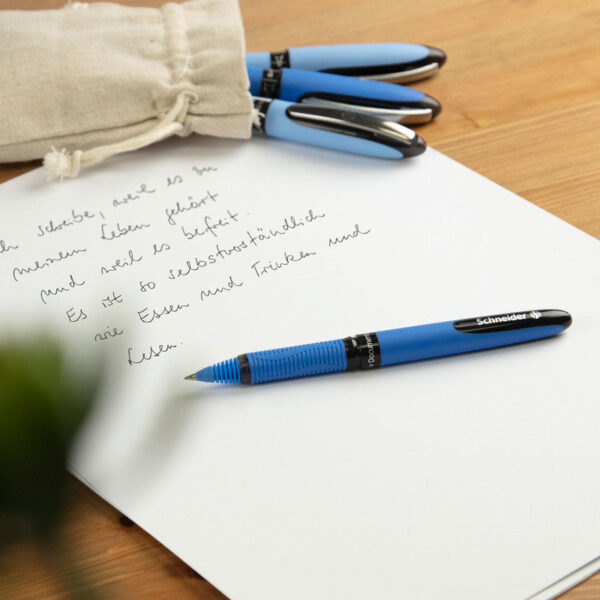 schreibe, weil es zu
meinem Leben gehört
und weil es befreit.
Es ist so selbstverständlich
wie Essen und Trinken und
Lesen.
Schneider
Document